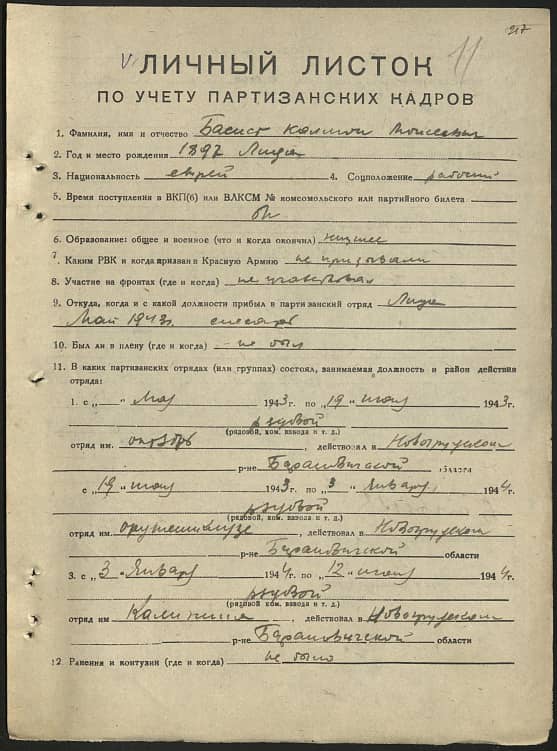 217
11
ЛИЧНЫЙ ЛИСТОК
ПО УЧЕТУ ПАРТИЗАНСКИХ КАДРОВ
1. Фамилия, имя и отчество Басист Калман Моисеевич
2. Год и место рождения 1897 Лида
3. Национальность еврей 4. Соцположение рабочий
5. Время поступления в ВКП(б) или ВЛКСМ № комсомольского или партийного билета
б/п
6. Образование: общее и военное (что и когда окончил) низшее
7. Каким РВК и когда призван в Красную Армию не призывали
8. Участие на фронтах (где и когда) не участвовал
9. Откуда, когда и с какой должности прибыл в партизанский отряд Лида
Май 1943г. слесарь
10. Был ли в плену (где и когда) не был
11. В каких партизанских отрядах (или группах) состоял, занимаемая должность и район действия
отряда:
1. с „ “ Мая 1943 г. по „19 “ июля 1943 г.
рядовой
(рядовой, ком. взвода и т. д.)
отряд им. октябрь , действовал в Новогрудском
р-не Барановичской области
с „19 июля 1943 г. по „3 “ Января 1944 г.
рядовой
(рядовой, ком. взвода и т. д.)
отряд им. орджоникидзе , действовал в Новогрудском
р-не Барановичской области
3. с „3 “ Января 1944 г. по „12 “ июля 1944 г.
рядовой
(рядовой, ком. взвода и т. д.)
отряд им Калинина , действовал в Новогрудском
р-не Барановичской области
12. Ранения и контузии (где и когда) не было